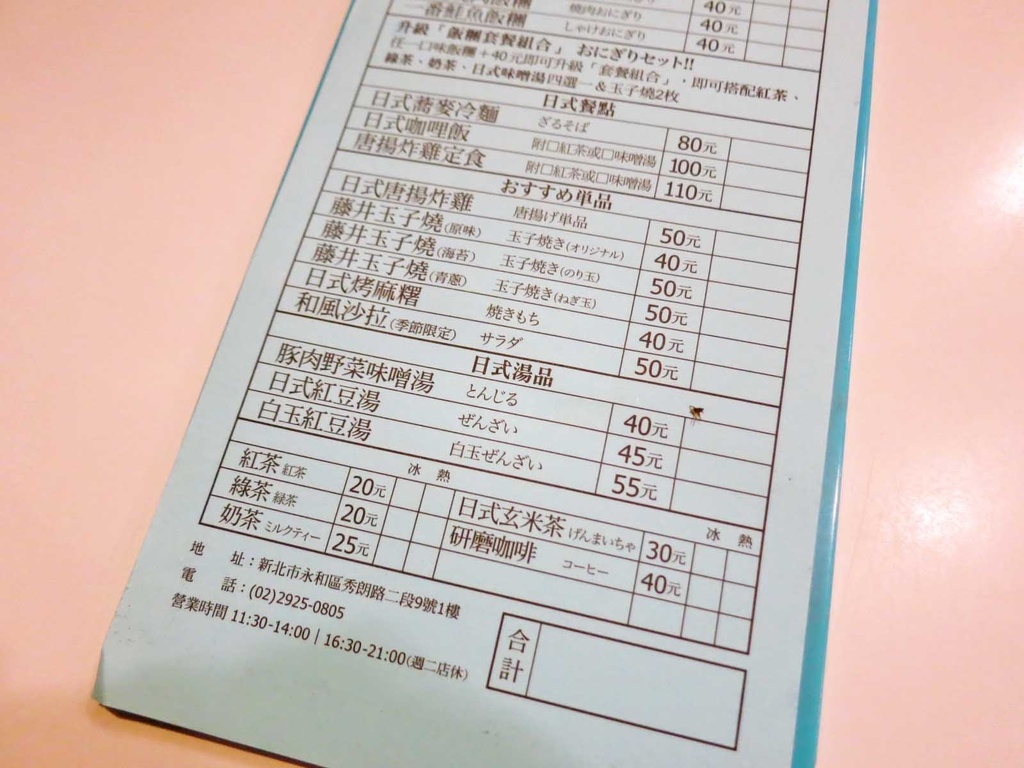 燒肉おにぎり 40元
一番鮭魚飯糰 しゃけおにぎり 40元
升級「飯糰套餐組合」 おにぎりセット!!
任一口味飯糰+40元即可升級「套餐組合」,即可搭配紅茶、
綠茶、奶茶、日式味噌湯四選一&玉子燒2枚
日式餐點
日式蕎麥冷麵 ざるそば 80元
日式咖哩飯 附口紅茶或口味噌湯 100元
唐揚炸雞定食 附口紅茶或口味噌湯 110元
おすすめ単品
日式唐揚炸雞 唐揚げ単品 50元
藤井玉子燒(原味) 玉子焼き(オリジナル) 40元
藤井玉子燒(海苔) 玉子焼き(のり玉) 50元
藤井玉子燒(青蔥) 玉子焼き(ねぎ玉) 50元
日式烤麻糬 焼きもち 40元
和風沙拉(季節限定) サラダ 50元
日式湯品
豚肉野菜味噌湯 とんじる 40元
日式紅豆湯 ぜんざい 45元
白玉紅豆湯 白玉ぜんざい 55元
冰 熱
紅茶 紅茶 20元
綠茶 緑茶 20元
奶茶 ミルクティー 25元
冰 熱
日式玄米茶 げんまいちゃ 30元
研磨咖啡 コーヒー 40元
地 址:新北市永和區秀朗路二段9號1樓
電 話:(02)2925-0805
營業時間 11:30-14:00 | 16:30-21:00(週二店休)
合計